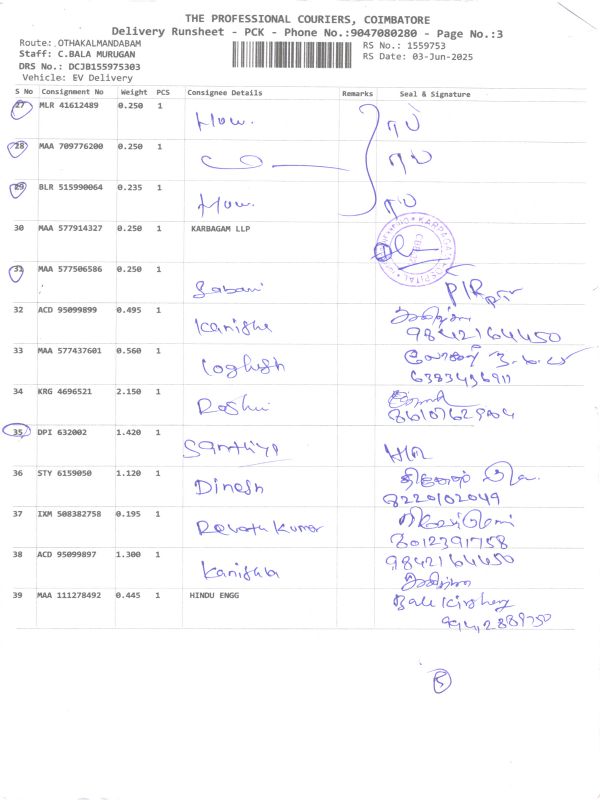 THE PROFESSIONAL COURIERS, COIMBATORE
Delivery Runsheet - PCK - Phone No.:9047080280 - Page No.:3
Route: OTHAKALMANDABAM
RS No.: 1559753
Staff: C.BALA MURUGAN
RS Date: 03-Jun-2025
DRS No.: DCJB155975303
Vehicle: EV Delivery
S No Consignment No Weight PCS Consignee Details Remarks Seal & Signature
27 MLR 41612489 0.250 1
28 MAA 709776200 0.250 1
29 BLR 515990064 0.235 1
30 MAA 577914327 0.250 1 KARBAGAM LLP
31 MAA 577506586 0.250 1
Sabari
32 ACD 95099899 0.495 1
Kanisha
9842164450
33 MAA 577437601 0.560 1
Loghesh
6383496911
34 KRG 4696521 2.150 1
Roshni
35 DPI 632002 1.420 1
Santhiya
36 STY 6159050 1.120 1
Dinesh
8220102049
37 IXM 508382758 0.195 1
Revathi Kumar
8012391758
38 ACD 95099897 1.300 1
Kanishka
9842164450
39 MAA 111278492 0.445 1 HINDU ENGG
9942889750
5